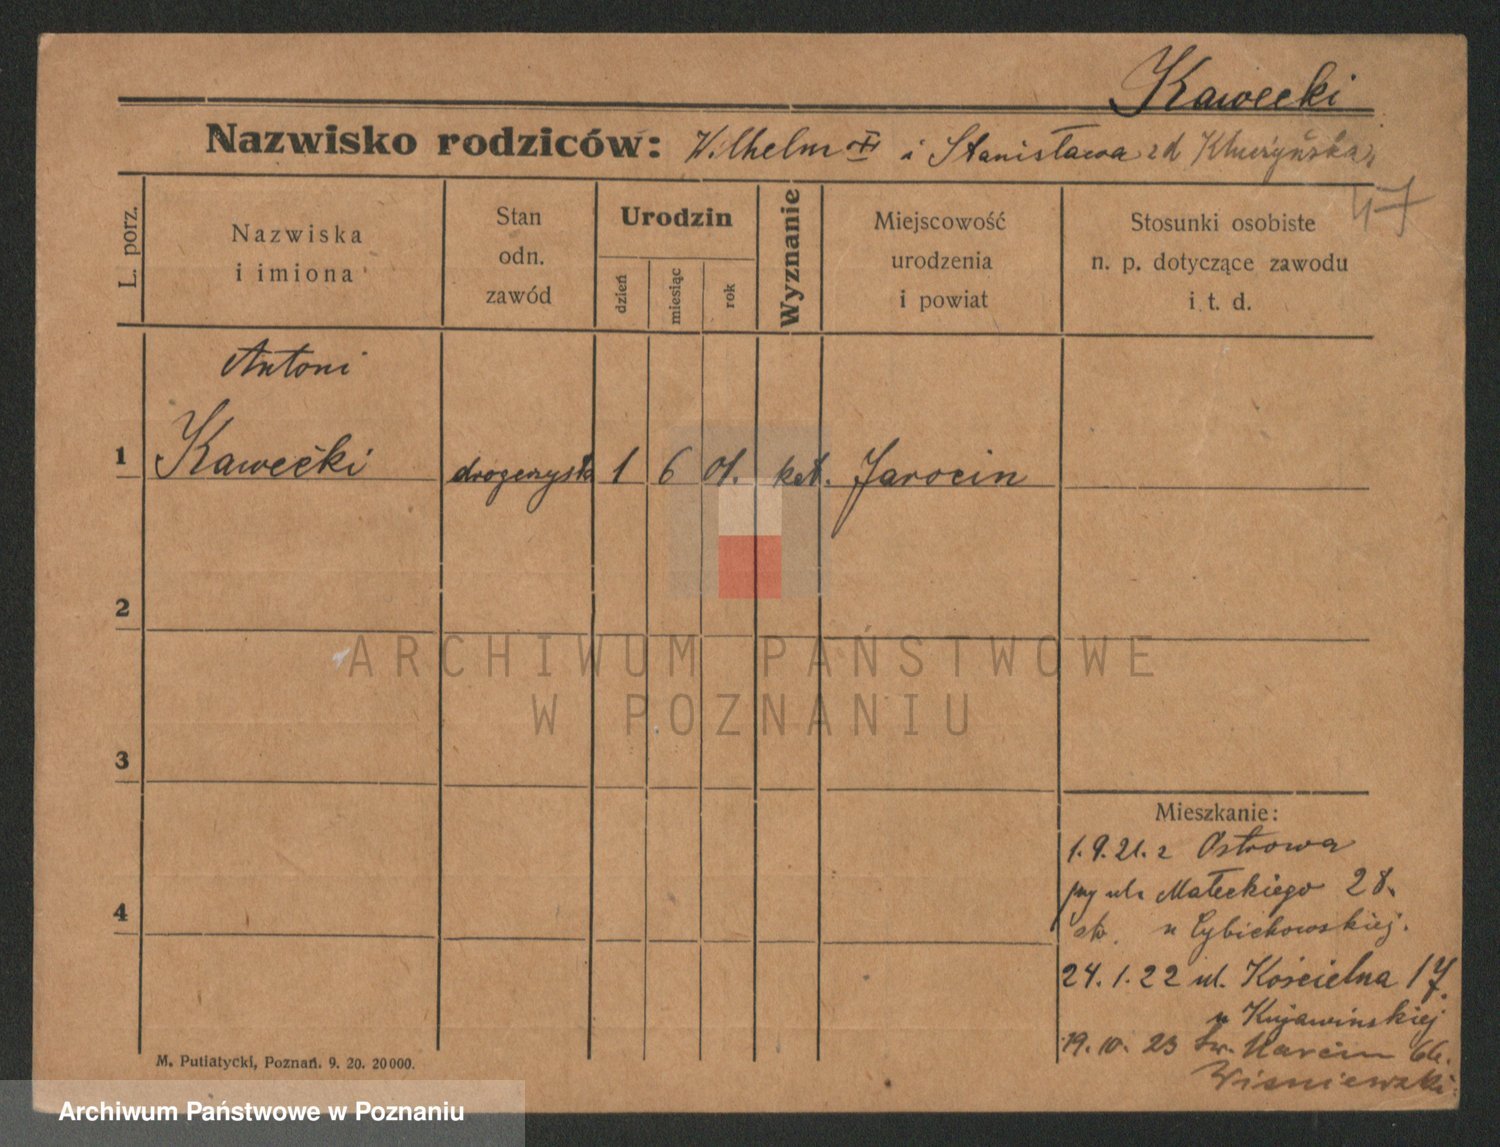 Kawecki
Nazwisko rodziców: Wilhelm i Stanisława zd
47
L. porz.
Nazwiska
i imiona
Stan
odn.
zawód
Urodzin
dzień
miesiąc
rok
Wyznanie
Miejscowość
urodzenia
i powiat
Stosunki osobiste
n. p. dotyczące zawodu
i t. d.
Antoni
1 Kawecki drogerzysta 1 6 01. kat. Jarocin
2
3
4
ARCHIWUM PAŃSTWOWE
W POZNANIU
Mieszkanie:
1.9.21. z Ostrowa
przy ul. Małeckiego 28.
u Cybichowskiej.
24.1.22 ul. Kościelna 17.
u Kujawińskiej
19.10.23 Św. Marcin 66.
Wiśniewski
M. Putiatycki, Poznań. 9. 20. 20000.
Archiwum Państwowe w Poznaniu